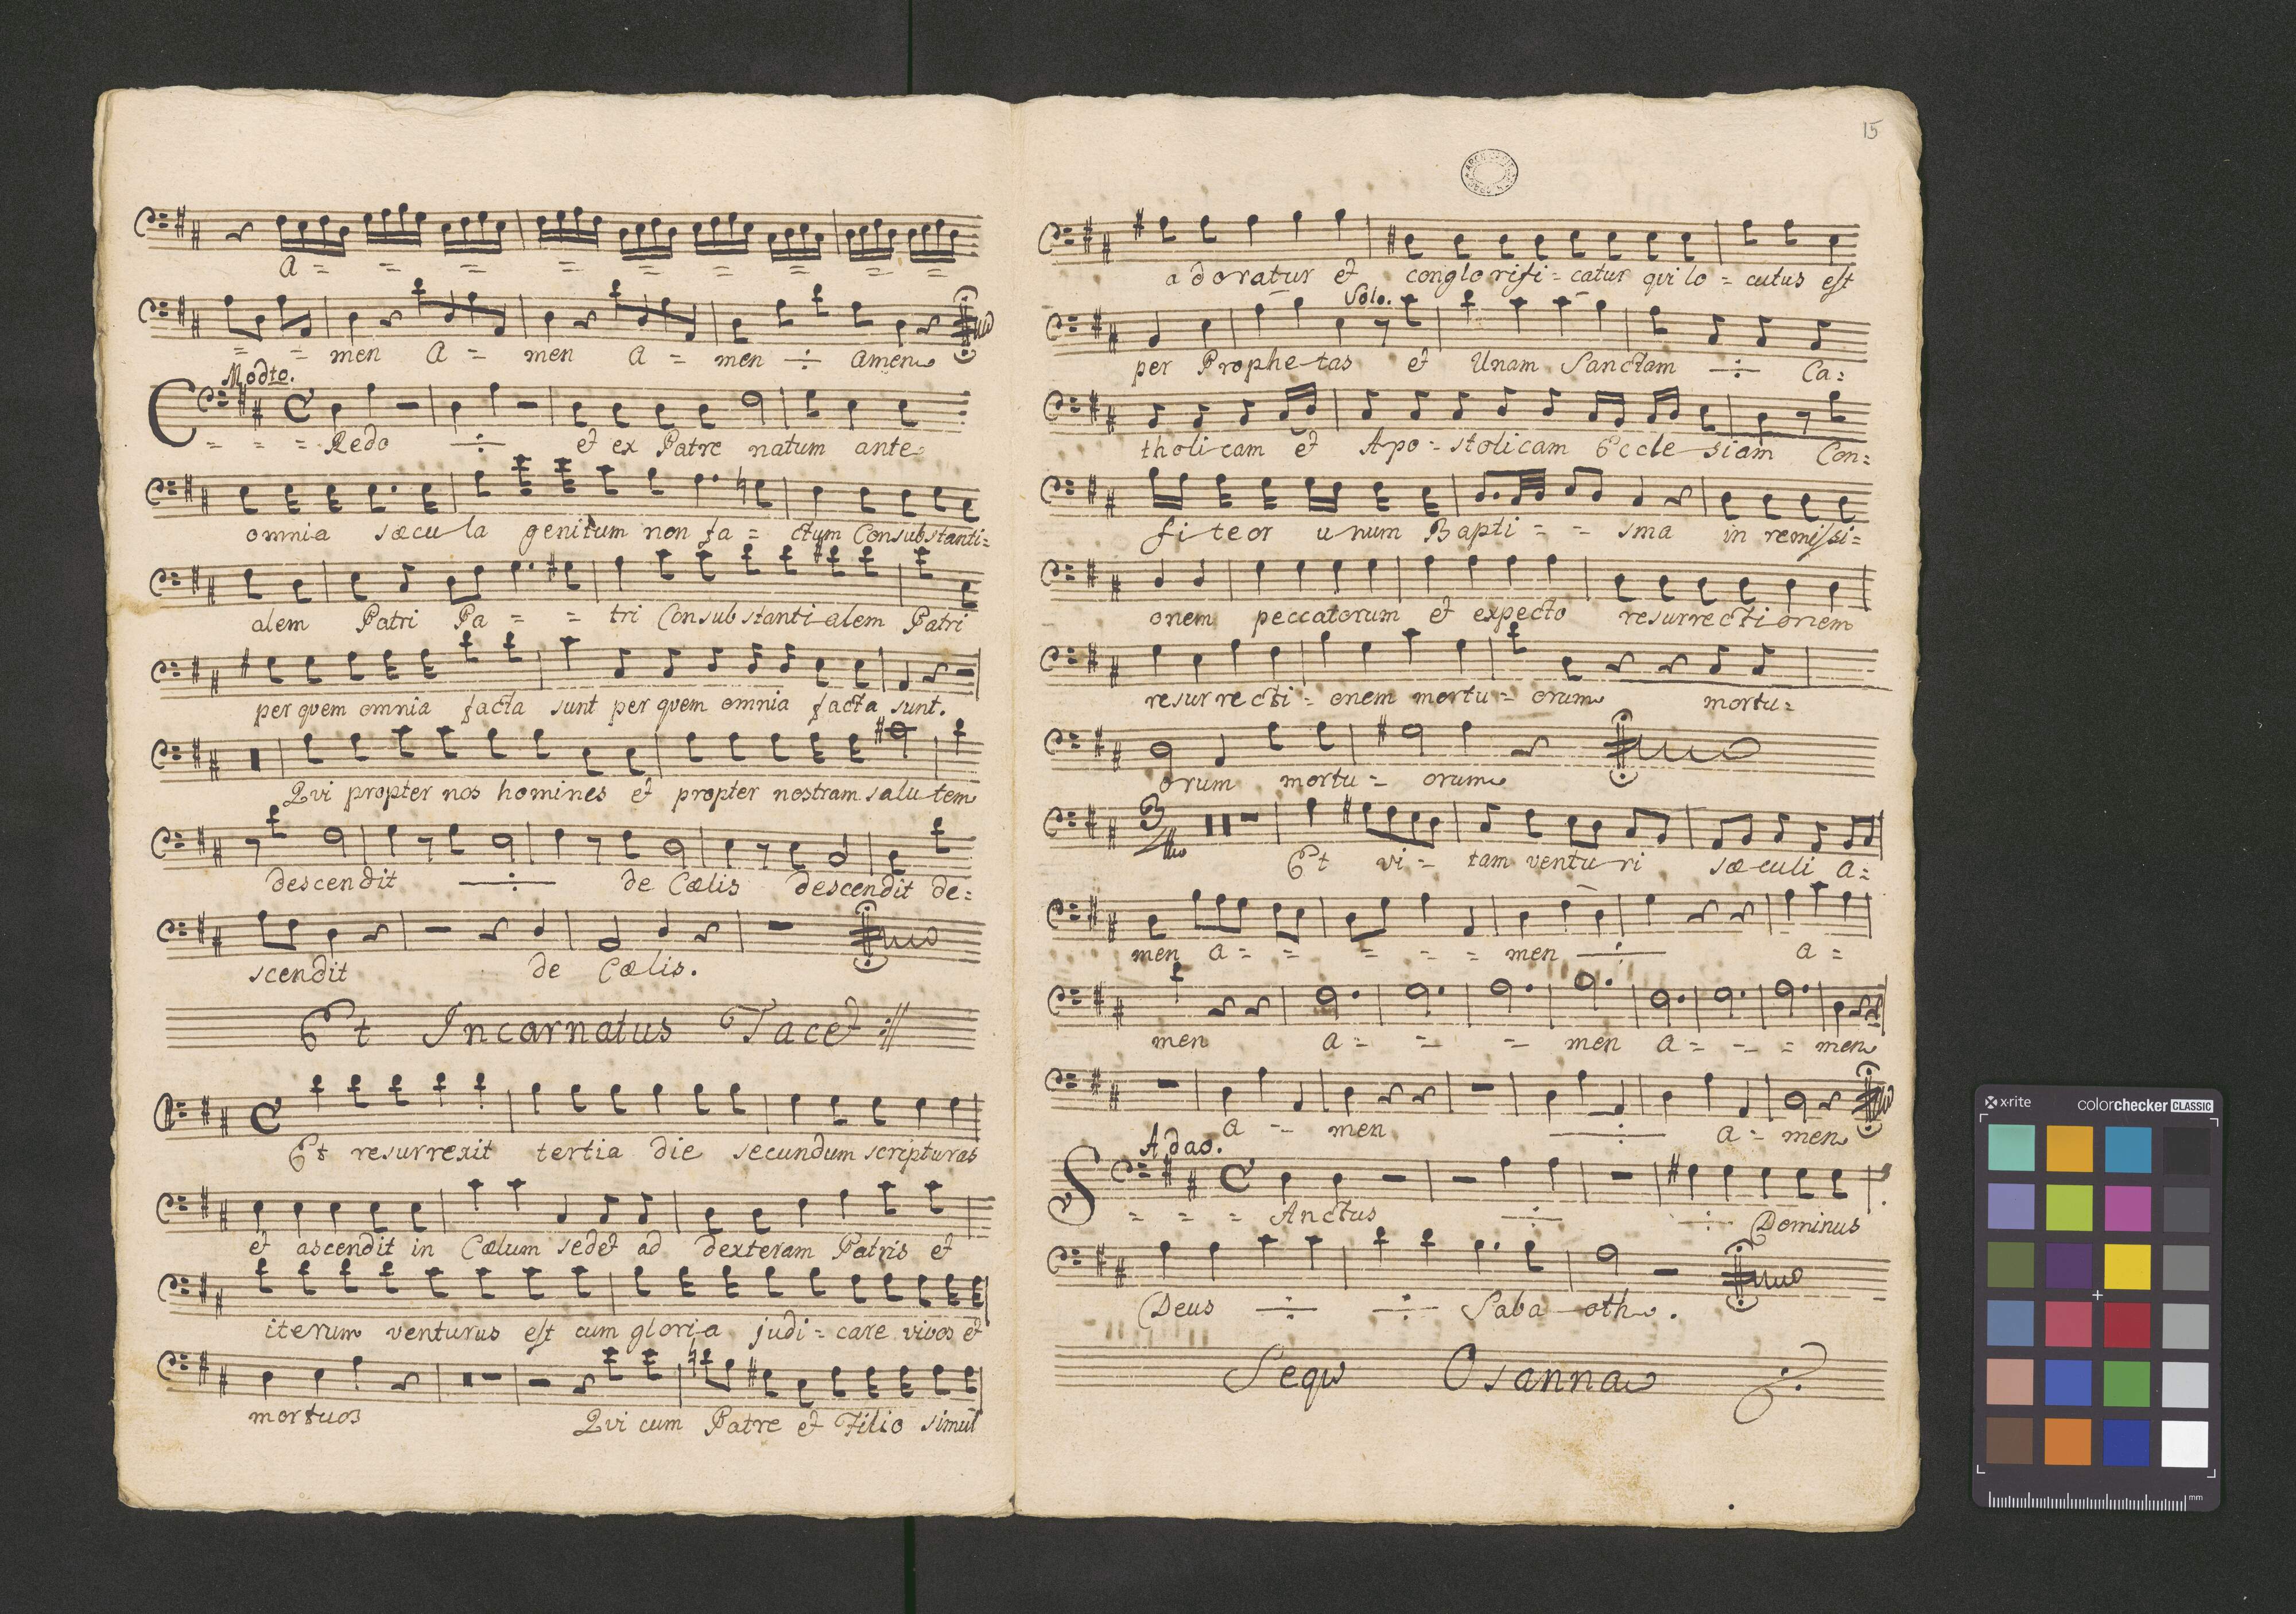 A = = = = = = = =
= = men A = men A = men ÷ amen
Modto.
C = = = Redo ÷ et ex Patre natum ante
omnia sæcula genitum non fa = ctum Consubstanti=
alem Patri Pa = = tri Consubstantialem Patri
per qvem omnia facta sunt per qvem omnia facta sunt.
Qvi propter nos homines et propter nostram salutem
descendit ÷ de Cælis descendit de=
scendit de Cælis.
Et Incarnatus Tacet
Et resurrexit tertia die secundum scripturas
et ascendit in Cælum sedet ad dexteram Patris et
iterum venturus est cum gloria judi = care vivos et
mortuos Qvi cum Patre et Filio simul
15
adoratur et conglorifi = catur qvi lo = cutus est
Solo.
per Prophetas et Unam Sanctam ÷ Ca=
tholicam et Apo = stolicam Eccle siam Con=
fiteor unum Bapti = = sma in remissi=
onem peccatorum et expecto resurrectionem
resurrecti = onem mortu = orum mortu=
orum mortu = orum
3
Et vi = tam venturi sæculi a=
men a = = = = = men ÷ a =
men a = = = men a = = = men
a = men ÷ a = men
Adao.
S = = = Anctus ÷ ÷ Dominus
Deus ÷ ÷ Saba oth.
Seqv Osanna